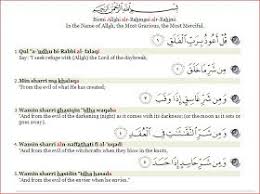 بِسْمِ اللَّهِ الرَّحْمَٰنِ الرَّحِيمِ
Bismi Allahi alr-Rahmani alr-Rahimi
In the Name of Allah, the Most Gracious, the Most Merciful.
قُلْ أَعُوذُ بِرَبِّ الْفَلَقِ
1. Qul
bi-Rabbi al-falaqi
Say: "I seek refuge with (Allah) the Lord of the daybreak,
مِن شَرِّ مَا خَلَقَ
2. Min sharri ma khalaqa
"From the evil of what He has created;
وَمِن شَرِّ غَاسِقٍ إِذَا وَقَبَ
3. Wamin sharri ghasiqin idha waqaba
"And from the evil of the darkening (night) as it comes with its darkness; (or the moon as it sets or
goes away).
وَمِن شَرِّ النَّفَّاثَاتِ فِي الْعُقَدِ
4. Wamin sharri aln-naffathati fi al 'uqadi
"And from the evil of the witchcrafts when they blow in the knots,
وَمِن شَرِّ حَاسِدٍ إِذَا حَسَدَ
5. Wamin sharri hasidin idha hasada
"And from the evil of the envier when he envies."